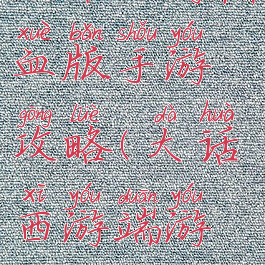 xuè bǎn shǒu yóu
血版手游
gōng lüè dà huà
攻略(大话
xī yóu duān yóu
西游端游